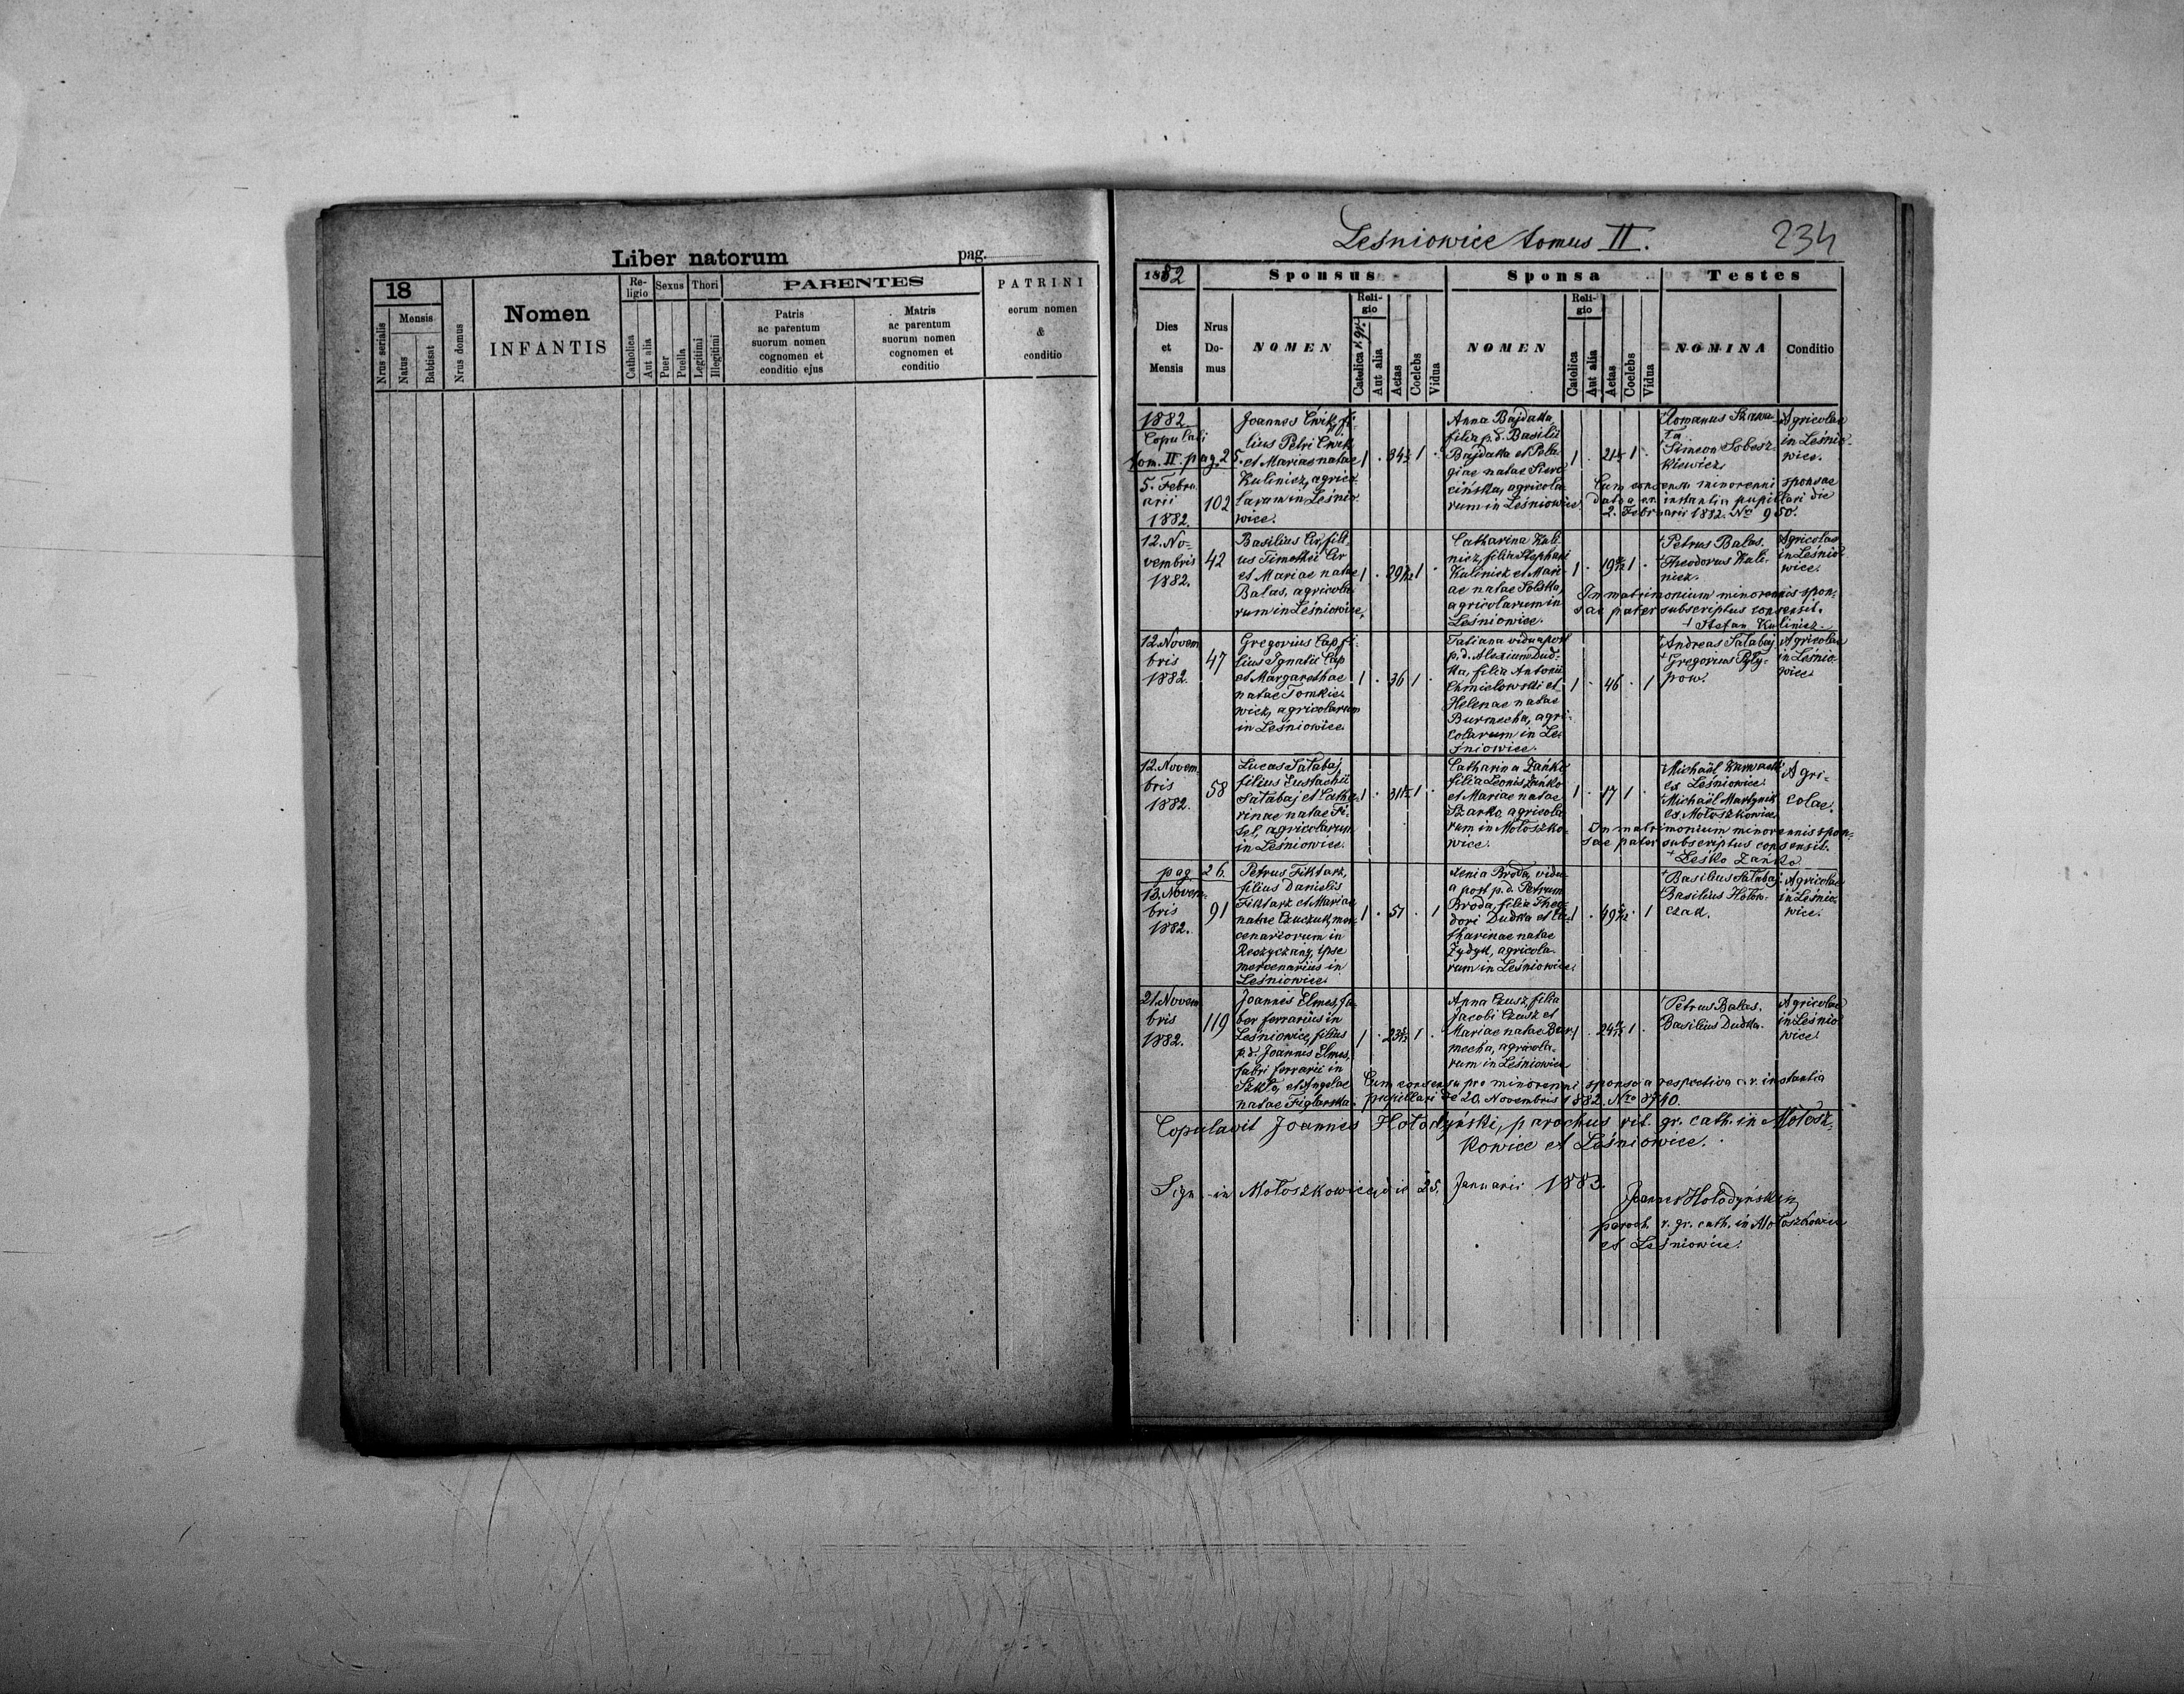 Liber natorum pag.
18
Nrus serialis
Mensis
Natus
Babtisat
Nrus domus
Nomen
INFANTIS
Re-
ligio
Catholica
Aut alia
Sexus
Puer
Puella
Thori
Legitimi
Illegitimi
PARENTES
Patris
ac parentum
suorum nomen
cognomen et
conditio ejus
Matris
ac parentum
suorum nomen
cognomen et
conditio
PATRINI
eorum nomen
&
conditio
Leśniowice tomus II.
234
1882
Dies
et
Mensis
Nrus
Do-
mus
Sponsus
NOMEN
Reli-
gio
Catolica r. gr.
Aut alia
Aetas
Coelebs
Vidua
Sponsa
NOMEN
Reli-
gio
Catolica
Aut alia
Aetas
Coelebs
Vidua
Testes
NOMINA
Conditio
1882
Copulati
tom. II pag. 25.
5. Febru
arii
1882.
102
Joannes Ćwik, fi-
lius Petri Ćwik
et Mariae natae
Kulinicz, agrico-
larum in Leśnio
wice.
1 . 34½ 1 .
Anna Bajdała,
filia p. d. Basilii
Bajdała et Pela-
giae natae Sien
cińska, agricola
rum in Leśniowice.
1 . 1 .
Romanus
Simeon Sobesz-
kiewicz.
Agricolae
in Leśnio-
wice.
Cum consensu minorenni sponsae
dato a instantia pupillari die
2. Februarii 1882. Nro 950.
12. No-
vembris
1882.
42
Basilius Cir, fili-
us Timothei Cir
et Mariae natae
Balas, agricola
rum in Leśniowice,
1 . 1 .
Catharina Kuli-
nicz, filia Stephani
Kulinicz et Mari-
ae natae Solska,
agricolarum in
Leśniowice.
1 . 1 .
Petrus Balas.
Theodorus Kuli-
nicz.
Agricolae
in Leśnio-
wice.
In matrimonium minorennis spon-
sae pater subscriptus consensit.
+ Stefan Kulinicz.
12 Novem
bris
1882.
47
Gregorius Cap, fi-
lius Ignatii Cap
et Margarethae
natae Tomkie-
wicz, agricolarum
in Leśniowice.
1 . 36 1 .
Tatiana vidua post
p. d. Alexium Dud-
ka, filia Antonii
Chmielowski et
Helenae natae
Burmecha, agri-
colarum in Le-
śniowice.
1 . 46 . 1
Andreas Sałabaj
Gregorius Pyły-
pow.
Agricolae
in Leśnio-
wice.
12. Novem
bris
1882.
58
Lucas Sałabaj
filius Eustachii
Sałabaj et Catha-
rinae natae Fi-
tel, agricolarum
in Leśniowice.
1 . 1 .
Catharina Zańko
filia Leonis Zańko
et Mariae natae
Szarko, agricola
rum in Mołoszko-
wice.
1 . 17 1 .
Michaël
ex Leśniowice
Michaël Martynik
ex Mołoszkowice
Agri-
colae.
In matrimonium minorennis spon-
sae pater subscriptus consensit.
+ Leśko Zańko
pag 26.
13. Novem-
bris
1882.
91
Petrus Fiktark,
filius Danielis
Fiktark et Mariae
natae Czuczuk, mer-
cenariorum in
Reczyczany, ipse
mercenarius in
Leśniowice.
1 . 51 . 1
Xenia Broda, vidu-
a post p. d. Petrum
Broda, filia Theo
dori Dudka et Ca-
tharinae natae
Żydyk, agricola-
rum in Leśniowice.
1 . . 1
Basilius Sałabaj.
Basilius Hołow-
czak.
Agricolae
in Leśnio-
wice.
21. Novem
bris
1882.
119
Joannes Elmes, fa-
ber ferrarius in
Leśniowice, filius
p. d. Joannis Elmes,
fabri ferrarii in
Szkło, et Angelae
natae Figlarska.
1 . 1 .
Anna Czusz, filia
Jacobi Czusz et
Mariae natae Bur-
mecha, agricola-
rum in Leśniowice
1 . 1 .
Petrus Balas.
Basilius Dudka.
Agricolae
in Leśnio
wice.
Cum consensu pro minorenni sponso a respectiva c. r. instantia
pupillari de 20. Novembris 1882. Nro 8740.
Copulavit Joannes Hołodyński, parochus rit. gr. cath. in Mołosz-
kowice et Leśniowice.
Sign. in Mołoszkowice die 25. Januarii 1883.
Joannes Hołodyński
paroch. r. gr. cath. in Mołoszkowice
et Leśniowice.